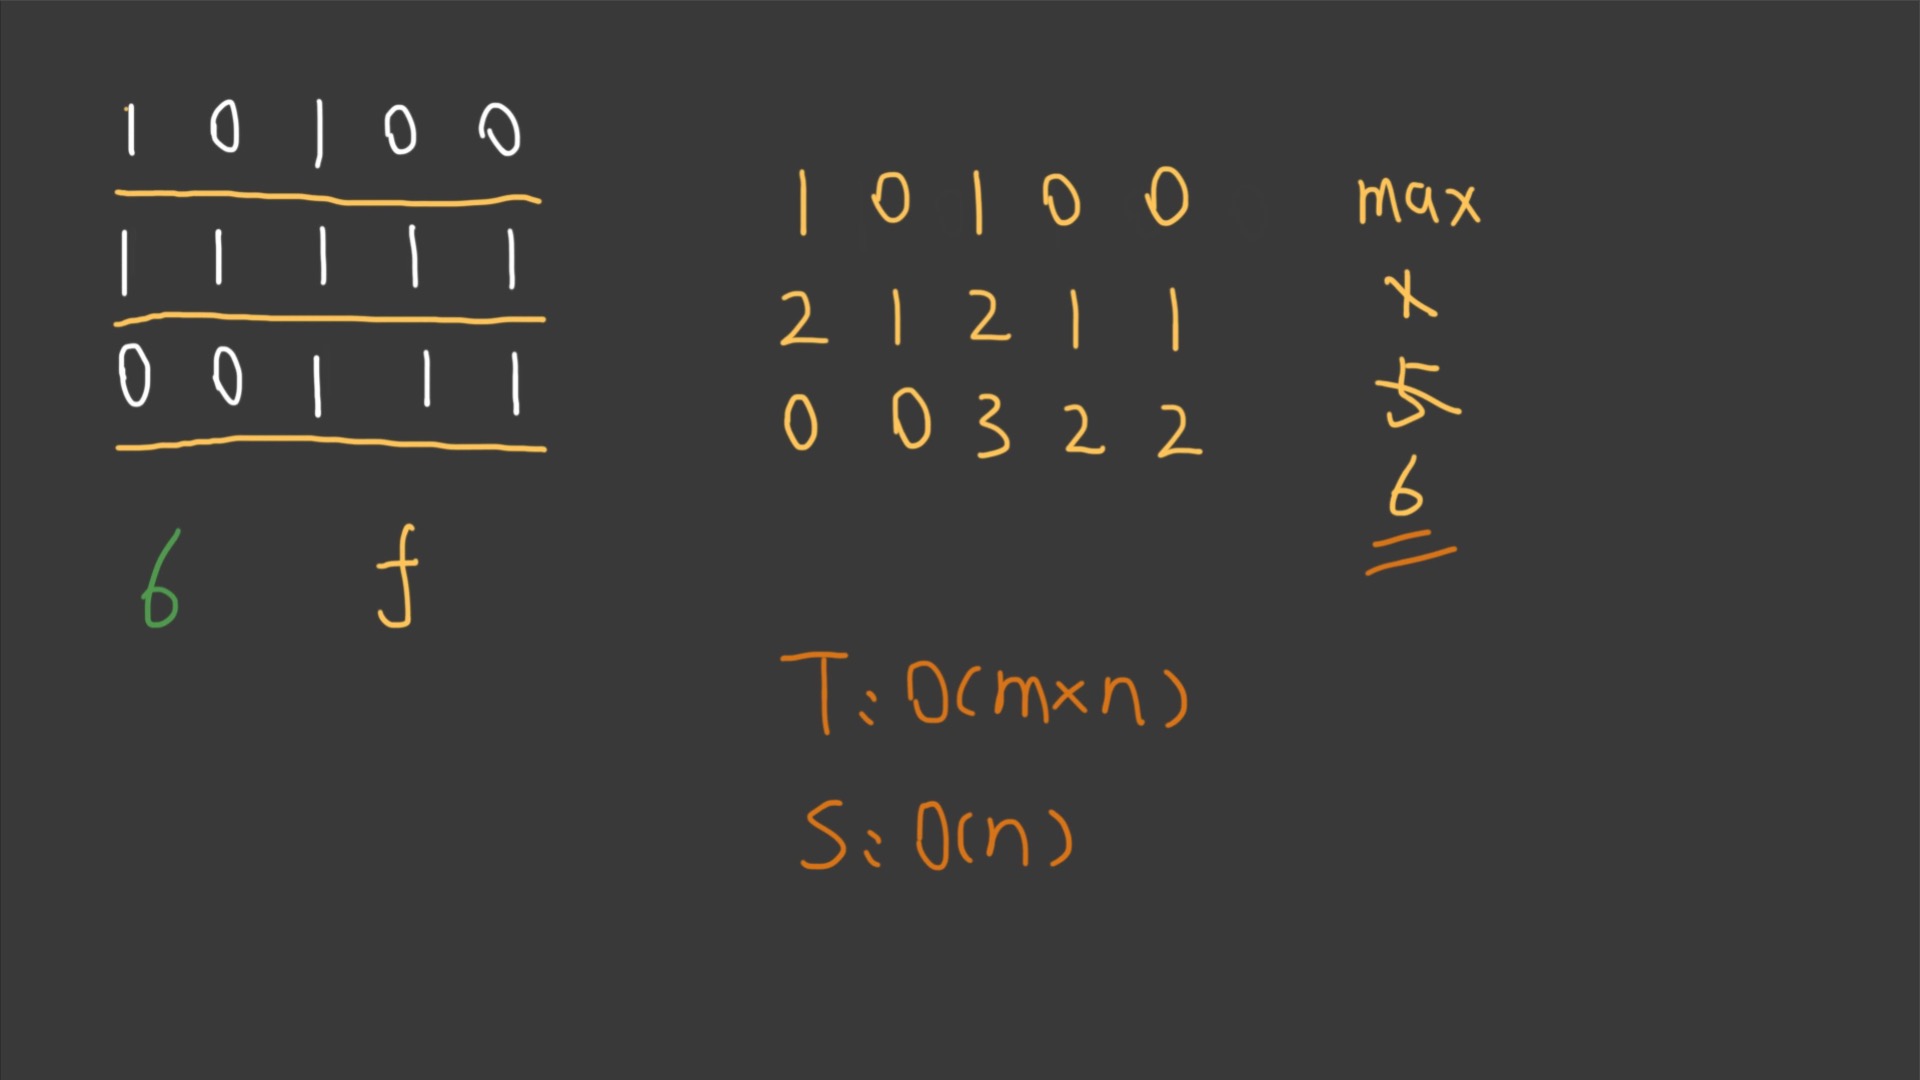 1 0 1 0 0
1 1 1 1 1
0 0 1 1 1
6 f
1 0 1 0 0
2 1 2 1 1
0 0 3 2 2
max
1
5
6
T: O(m×n)
S: O(n)